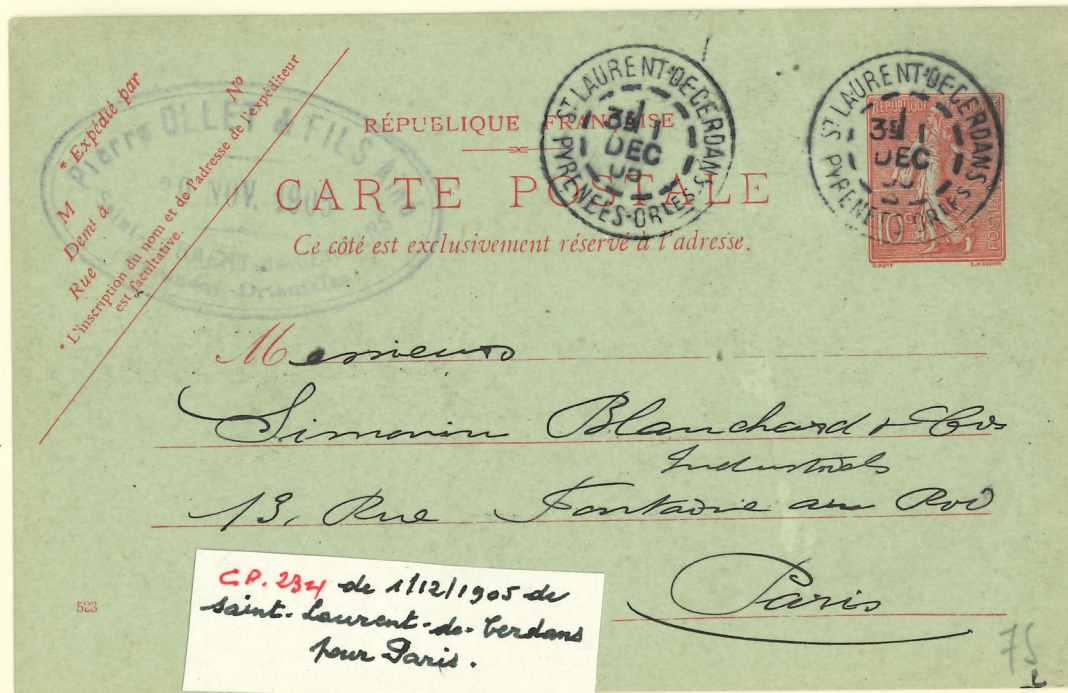 * Expédié par
M
Demt à
Rue No
* L'inscription du nom et de l'adresse de l'expéditeur
est facultative.
Pierre OLLET & FILS AINÉ
NOV. 1905
RÉPUBLIQUE FRANÇAISE
CARTE POSTALE
Ce côté est exclusivement réservé à l'adresse.
ST LAURENT-DE-CERDANS
3E
1
DEC
05
PYRENEES-ORLES
ST LAURENT-DE-CERDANS
3E
1
DEC
05
PYRENEES-ORLES
10
POSTES
Messieurs
Simonin Blanchard &
Industriels
13, Rue Fontaine au Roi
Paris
C.P. 234 de 1/12/1905 de
Saint-Laurent-de-Cerdans
pour Paris.
523
75